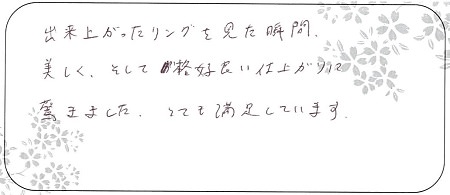 出来上がったリングを見た瞬間、
美しく、そして格好良い仕上がりに
驚きました。とても満足しています。